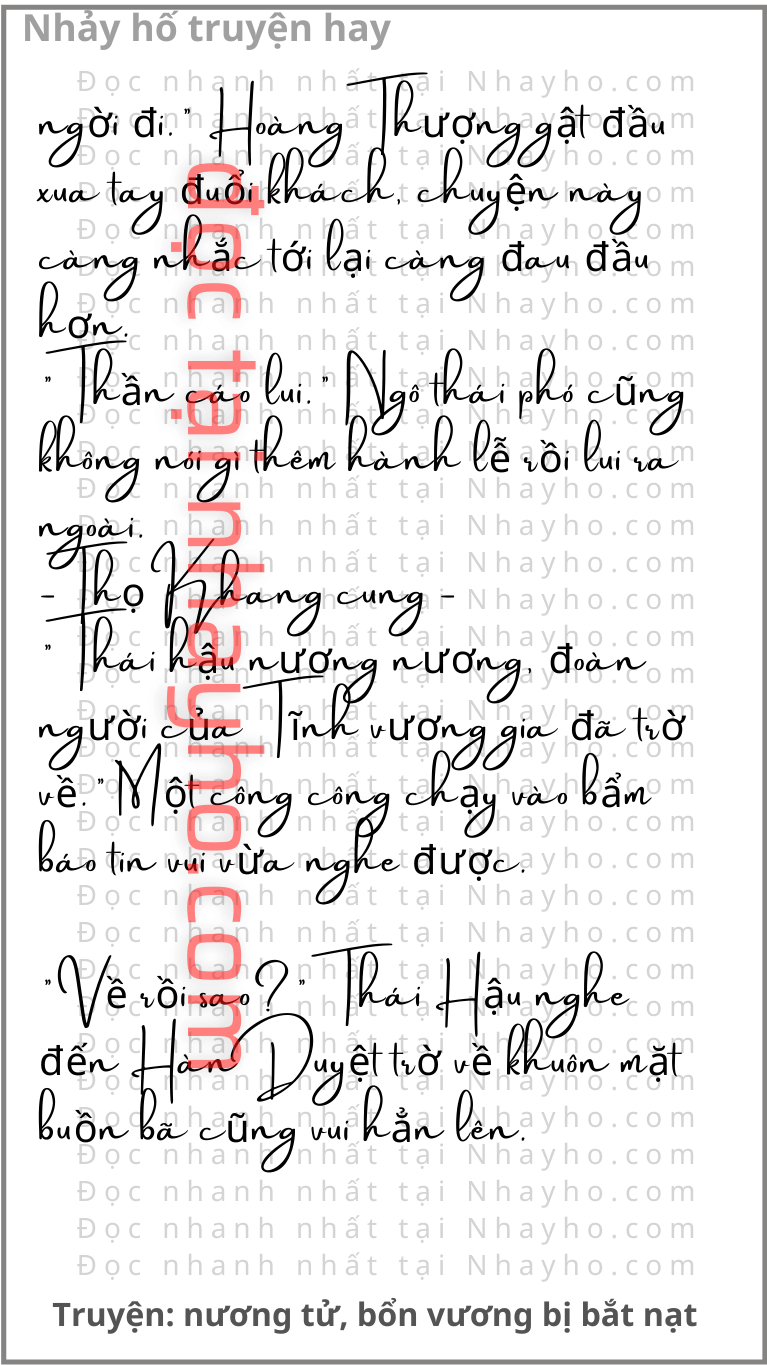 Nhảy hố truyện hay
ngời đi." Hoàng Thượng gật đầu
xua tay đuổi khách, chuyện này
càng nhắc tới lại càng đau đầu
hơn.
"Thần cáo lui." Ngô thái phó cũng
không nói gì thêm hành lễ rồi lui ra
ngoài.
- Thọ Khang cung -
"Thái hậu nương nương, đoàn
người của Tĩnh vương gia đã trờ
về." Một công công chạy vào bẩm
báo tin vui vừa nghe được.
"Về rồi sao?" Thái Hậu nghe
đến Hàn Duyệt trờ về khuôn mặt
buồn bã cũng vui hẳn lên.
đọc tại nhayho.com
Đọc nhanh nhất tại Nhayho.com
Truyện: nương tử, bổn vương bị bắt nạt